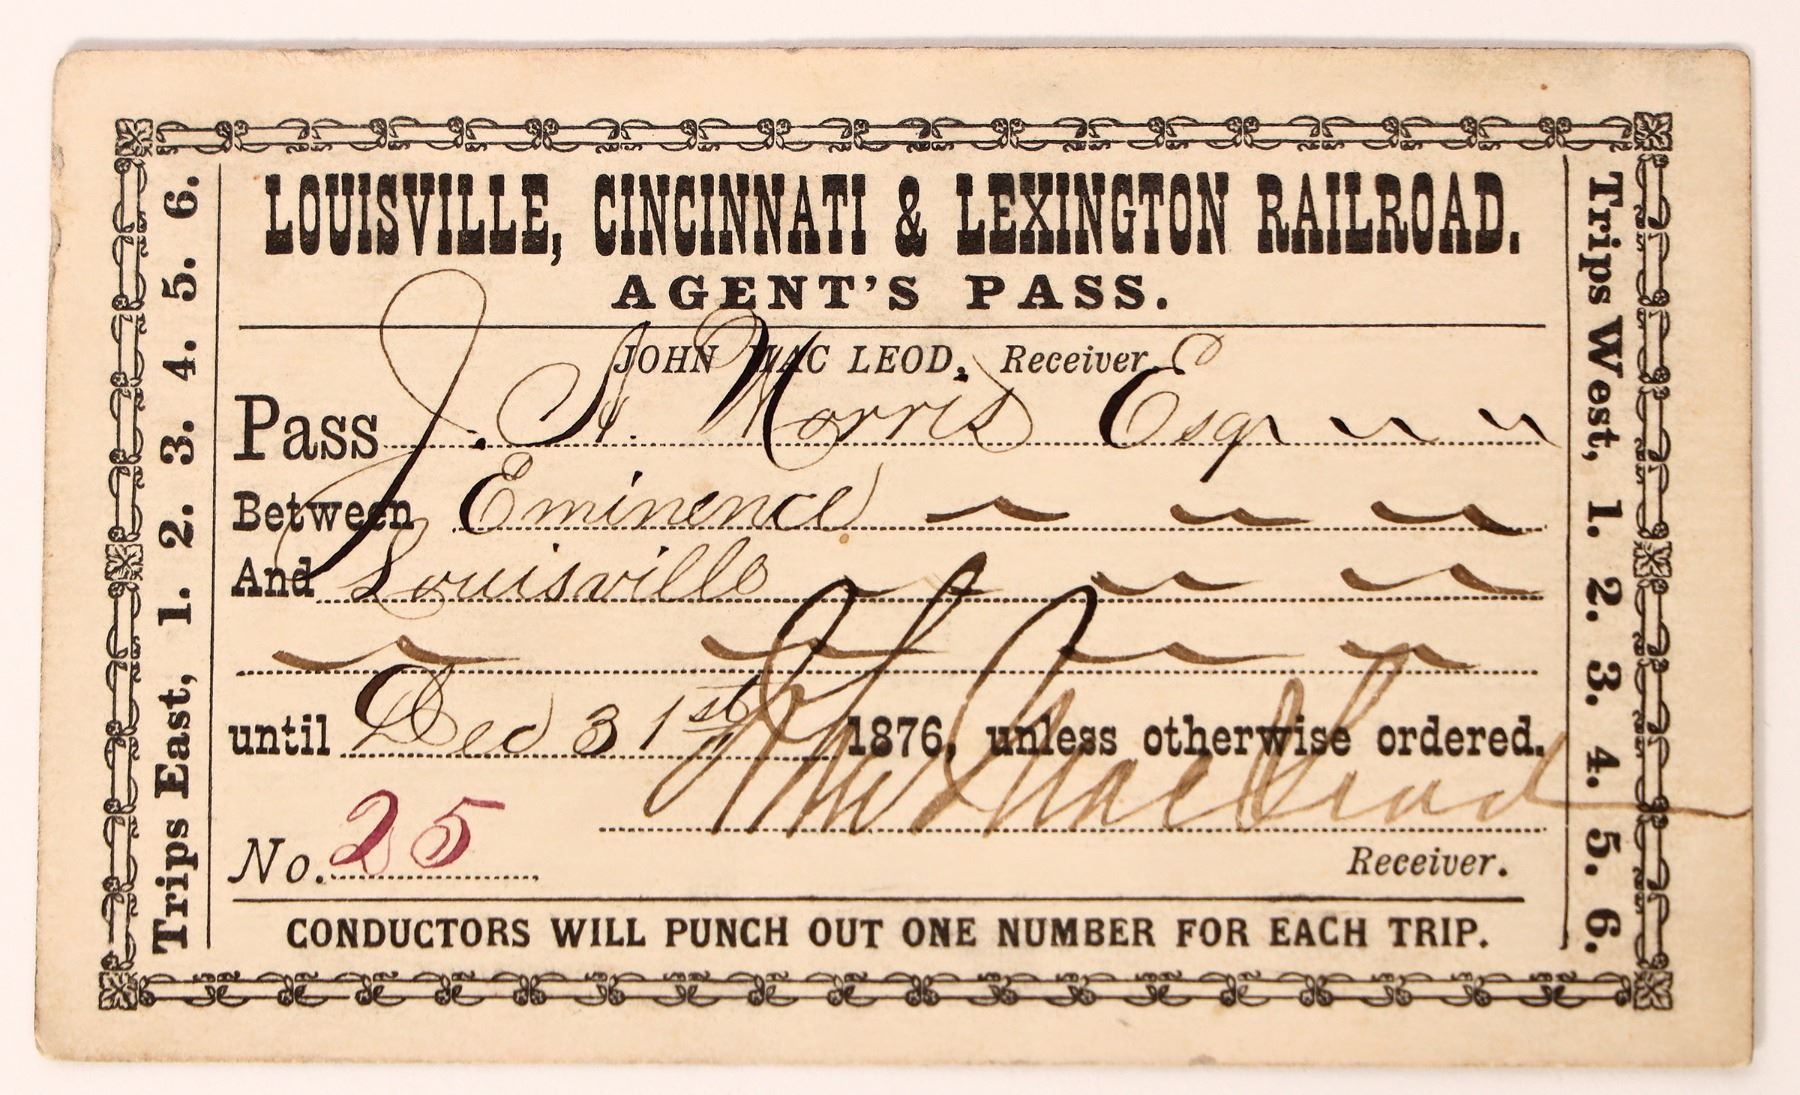 LOUISVILLE, CINCINNATI & LEXINGTON RAILROAD.
AGENT'S PASS.
JOHN MAC LEOD, Receiver.
Pass J. A. Morris Esqr
Between Eminence
And Louisville
until Dec 31st 1876, unless otherwise ordered.
Jno MacLeod
No. 25
Receiver.
CONDUCTORS WILL PUNCH OUT ONE NUMBER FOR EACH TRIP.
Trips East, 1. 2. 3. 4. 5. 6.
Trips West, 1. 2. 3. 4. 5. 6.